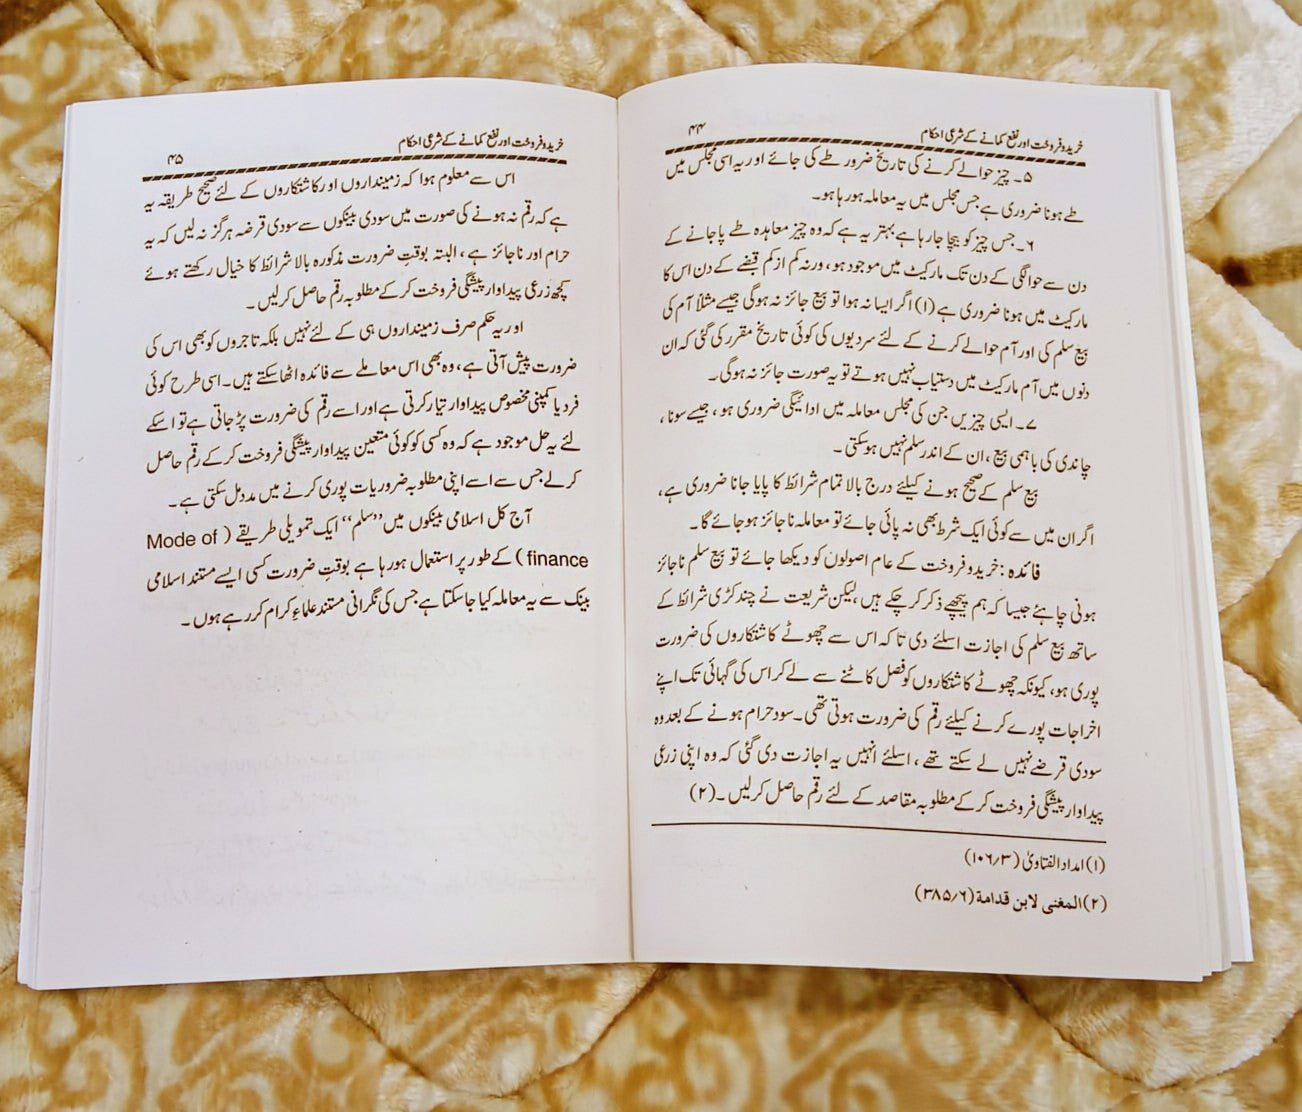 خرید و فروخت اور نفع کمانے کے شرعی احکام ۴۴
۵۔ چیز حوالے کرنے کی تاریخ ضرور طے کی جائے اور یہ اسی مجلس میں
طے ہونا ضروری ہے جس مجلس میں یہ معاملہ ہو رہا ہو۔
۶۔ جس چیز کو بیچا جا رہا ہے بہتر یہ ہے کہ وہ چیز معاہدہ طے پا جانے کے
دن سے حوالگی کے دن تک مارکیٹ میں موجود ہو، ورنہ کم از کم قبضے کے دن اس کا
مارکیٹ میں ہونا ضروری ہے (۱) اگر ایسا نہ ہوا تو بیع جائز نہ ہوگی جیسے مثلاً آم کی
بیع سلم کی اور آم حوالے کرنے کے لئے سردیوں کی کوئی تاریخ مقرر کی گئی کہ ان
دنوں میں آم مارکیٹ میں دستیاب نہیں ہوتے تو یہ صورت جائز نہ ہوگی۔
۷۔ ایسی چیزیں جن کی مجلس معاملہ میں ادائیگی ضروری ہو، جیسے سونا،
چاندی کی باہمی بیع، ان کے اندر سلم نہیں ہوسکتی۔
بیع سلم کے صحیح ہونے کیلئے درج بالا تمام شرائط کا پایا جانا ضروری ہے،
اگر ان میں سے کوئی ایک شرط بھی نہ پائی جائے تو معاملہ ناجائز ہو جائے گا۔
فائدہ: خرید و فروخت کے عام اصولوں کو دیکھا جائے تو بیع سلم ناجائز
ہونی چاہئے جیسا کہ ہم پیچھے ذکر کر چکے ہیں، لیکن شریعت نے چند کڑی شرائط کے
ساتھ بیع سلم کی اجازت اسلئے دی تاکہ اس سے چھوٹے کاشتکاروں کی ضرورت
پوری ہو، کیونکہ چھوٹے کاشتکاروں کو فصل کاٹنے سے لے کر اس کی گہائی تک اپنے
اخراجات پورے کرنے کیلئے رقم کی ضرورت ہوتی تھی۔ سود حرام ہونے کے بعد وہ
سودی قرضے نہیں لے سکتے تھے، اسلئے انہیں یہ اجازت دی گئی کہ وہ اپنی زرعی
پیداوار پیشگی فروخت کر کے مطلوبہ مقاصد کے لئے رقم حاصل کر لیں۔ (۲)
(۱) امداد الفتاویٰ (۱۰۶/۳)
(۲) المغنی لابن قدامة (۳۸۵/۶)
خرید و فروخت اور نفع کمانے کے شرعی احکام ۴۵
اس سے معلوم ہوا کہ زمینداروں اور کاشتکاروں کے لئے صحیح طریقہ یہ
ہے کہ رقم نہ ہونے کی صورت میں سودی بینکوں سے سودی قرضہ ہرگز نہ لیں کہ یہ
حرام اور ناجائز ہے، البتہ بوقت ضرورت مذکورہ بالا شرائط کا خیال رکھتے ہوئے
کچھ زرعی پیداوار پیشگی فروخت کر کے مطلوبہ رقم حاصل کر لیں۔
اور یہ حکم صرف زمینداروں ہی کے لئے نہیں بلکہ تاجروں کو بھی اس کی
ضرورت پیش آتی ہے، وہ بھی اس معاملے سے فائدہ اٹھا سکتے ہیں۔ اسی طرح کوئی
فرد یا کمپنی مخصوص پیداوار تیار کرتی ہے اور اسے رقم کی ضرورت پڑ جاتی ہے تو اسکے
لئے یہ حل موجود ہے کہ وہ کسی کو کوئی متعین پیداوار پیشگی فروخت کر کے رقم حاصل
کرلے جس سے اسے اپنی مطلوبہ ضروریات پوری کرنے میں مدد مل سکتی ہے۔
آج کل اسلامی بینکوں میں ’’سلم‘‘ ایک تمویلی طریقے ( Mode of
finance ) کے طور پر استعمال ہو رہا ہے بوقتِ ضرورت کسی ایسے مستند اسلامی
بینک سے یہ معاملہ کیا جا سکتا ہے جس کی نگرانی مستند علماءِ کرام کر رہے ہوں۔